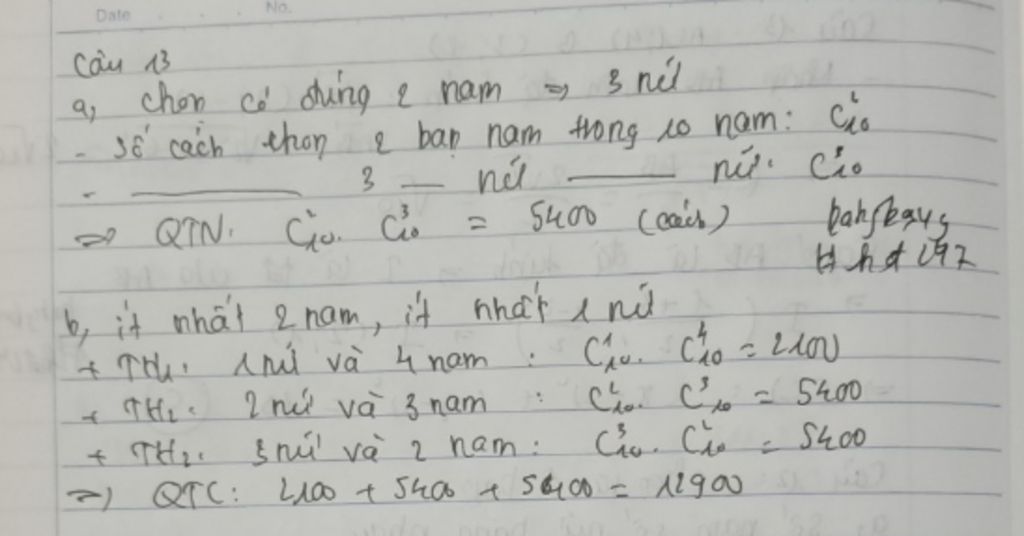 Date No.
Câu 13
a, chọn có đúng 2 nam => 3 nữ
- số cách chọn 2 bạn nam trong 10 nam: C²₁₀
- ——— 3 — nữ ——— nữ: C³₁₀
=> QTN: C²₁₀. C³₁₀ = 5400 (cách)
b, ít nhất 2 nam, ít nhất 1 nữ
+ TH₁: 1 nữ và 4 nam : C¹₁₀. C⁴₁₀ = 2100
+ TH₂: 2 nữ và 3 nam : C²₁₀. C³₁₀ = 5400
+ TH₂: 3 nữ và 2 nam : C³₁₀. C²₁₀ = 5400
=> QTC: 2100 + 5400 + 5400 = 12900